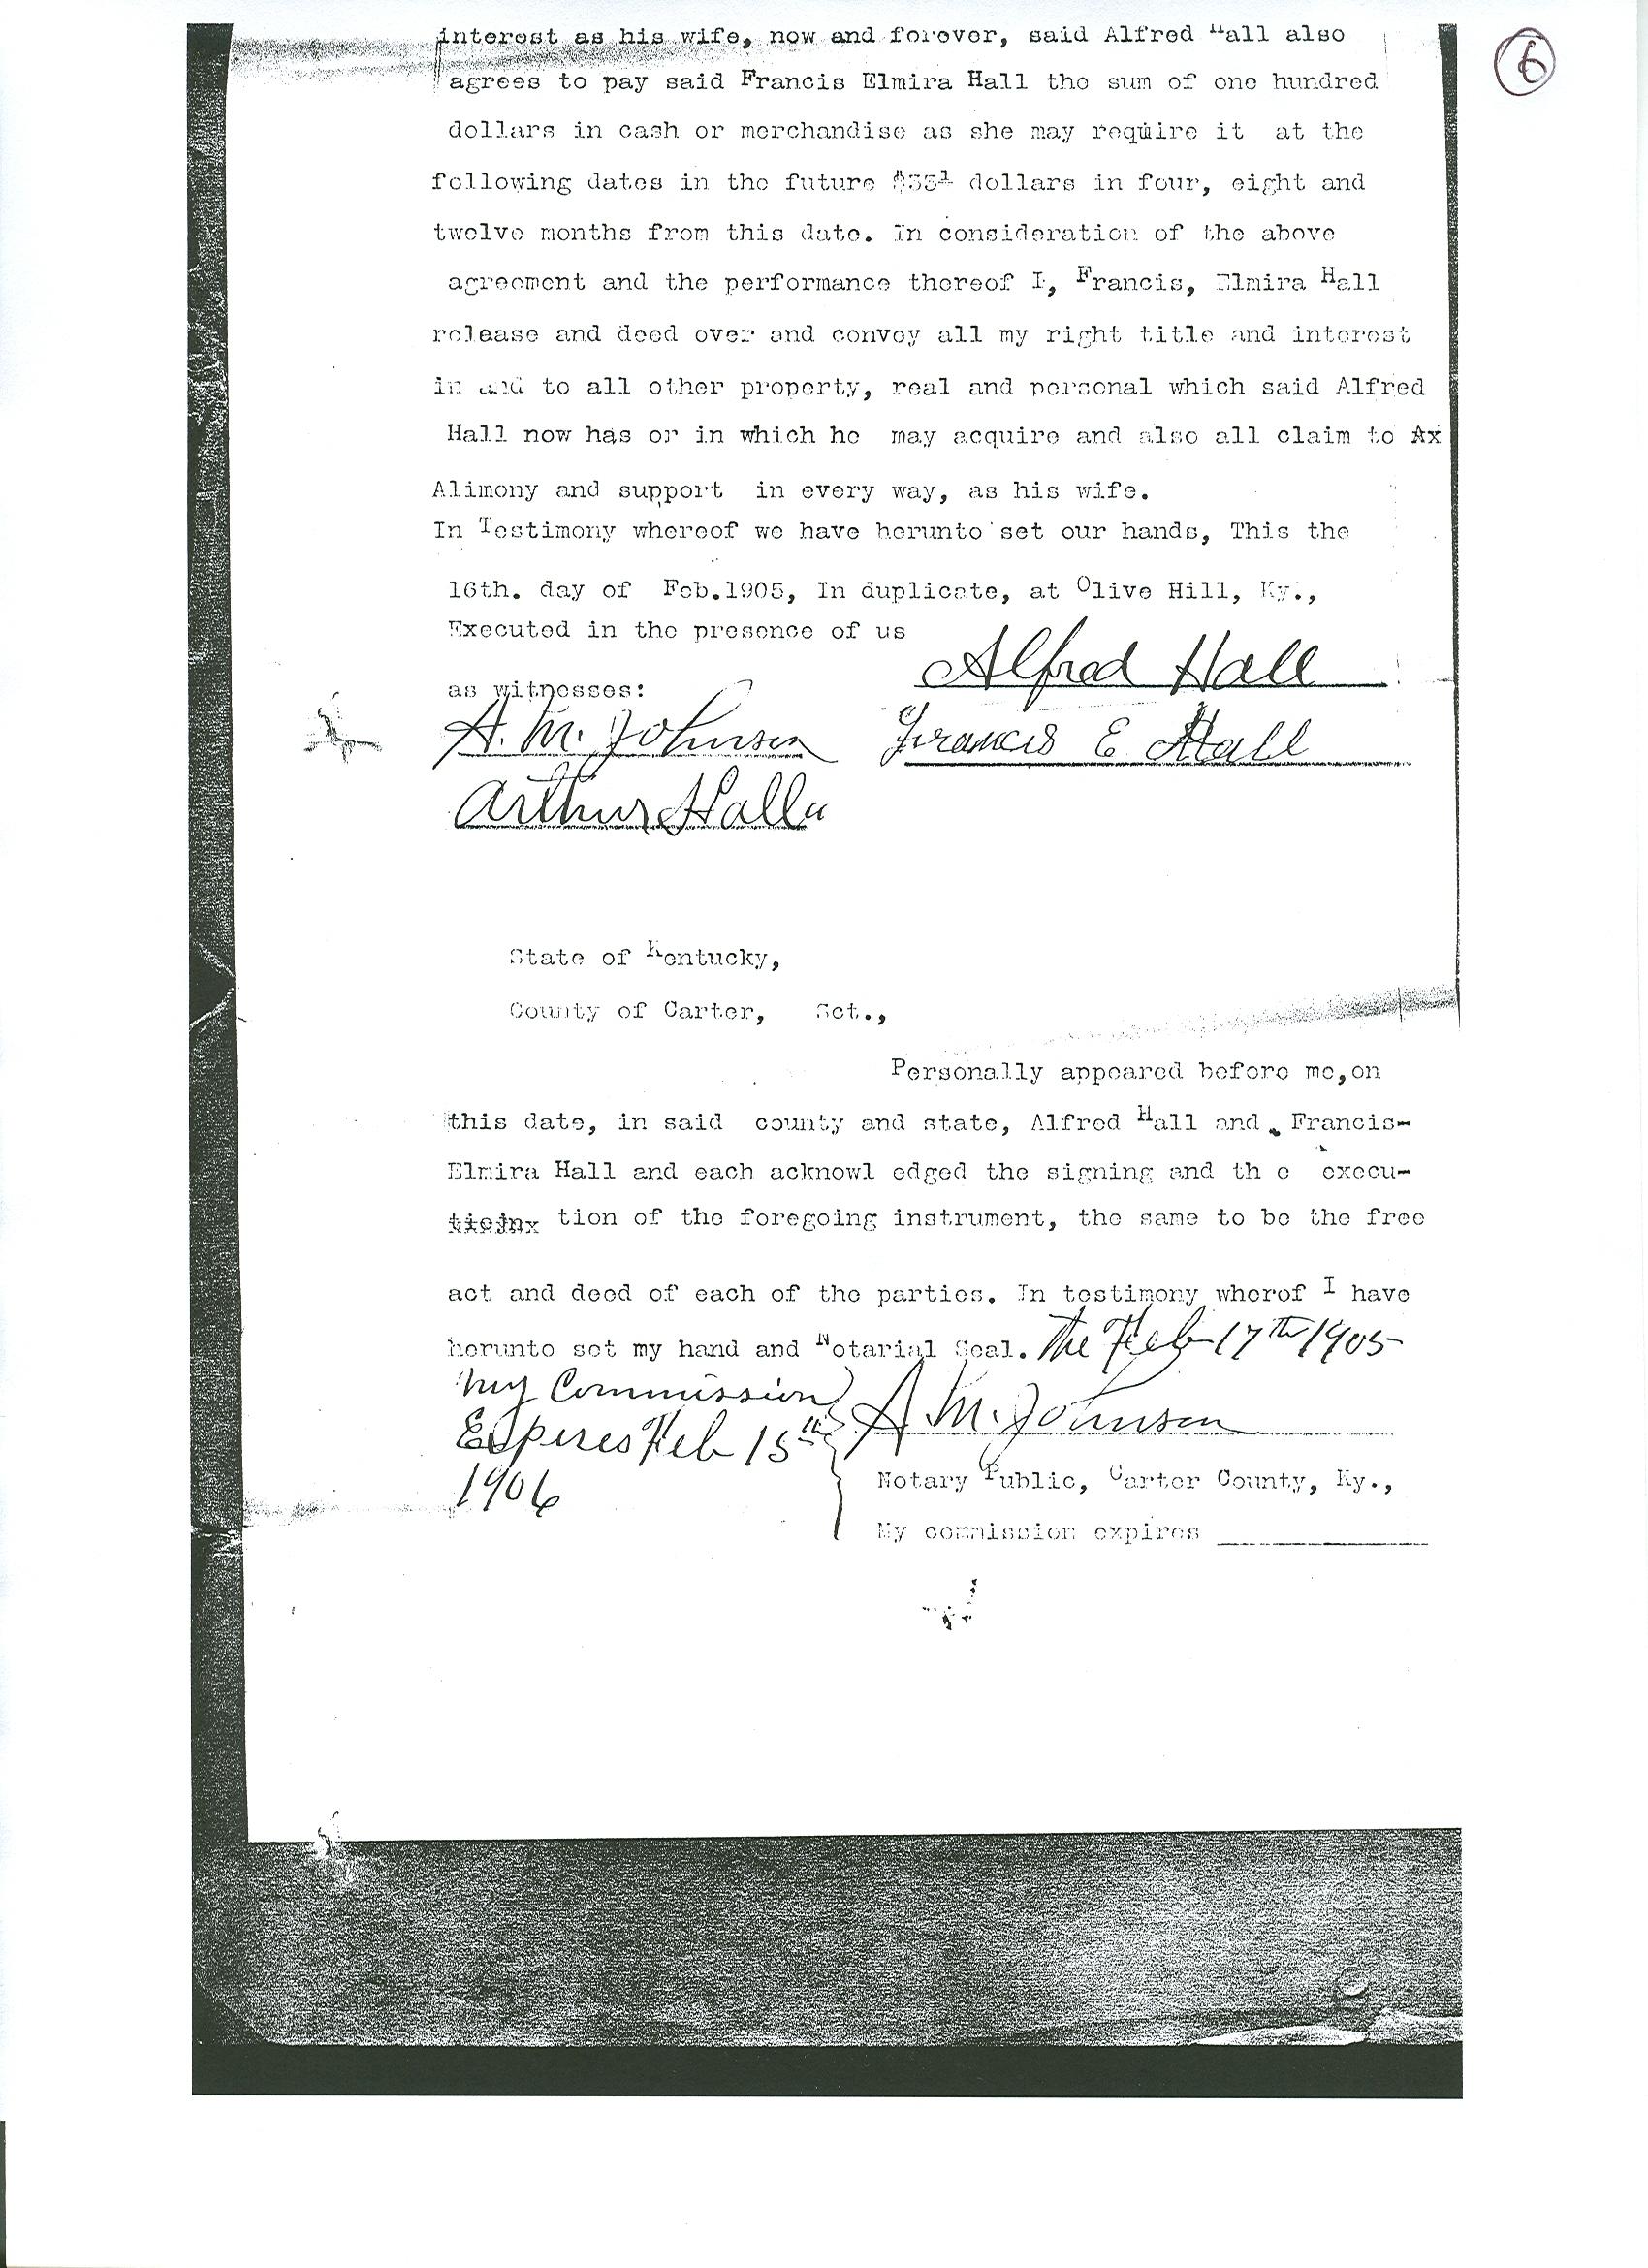 6
interest as his wife, now and forever, said Alfred Hall also
agrees to pay said Francis Elmira Hall the sum of one hundred
dollars in cash or merchandise as she may require it at the
following dates in the future $33⅓ dollars in four, eight and
twelve months from this date. In consideration of the above
agreement and the performance thereof I, Francis, Elmira Hall
release and deed over and convey all my right title and interest
in and to all other property, real and personal which said Alfred
Hall now has or in which he may acquire and also all claim to Ax
Alimony and support in every way, as his wife.
In Testimony whereof we have herunto set our hands, This the
16th. day of Feb.1905, In duplicate, at Olive Hill, Ky.,
Executed in the presence of us
Alfred Hall
as witnesses:
A. M. Johnson Francis E Hall
Arthur Hall
State of Kentucky,
County of Carter, Sct.,
Personally appeared before me,on
this date, in said county and state, Alfred Hall and Francis-
Elmira Hall and each acknowl edged the signing and th e execu-
tion of the foregoing instrument, the same to be the free
act and deed of each of the parties. In testimony wherof I have
herunto set my hand and Notarial Seal. The Feb 17th 1905
My Commission A M. Johnson
Expires Feb 15th
1906
Notary Public, Carter County, Ky.,
My commission expires